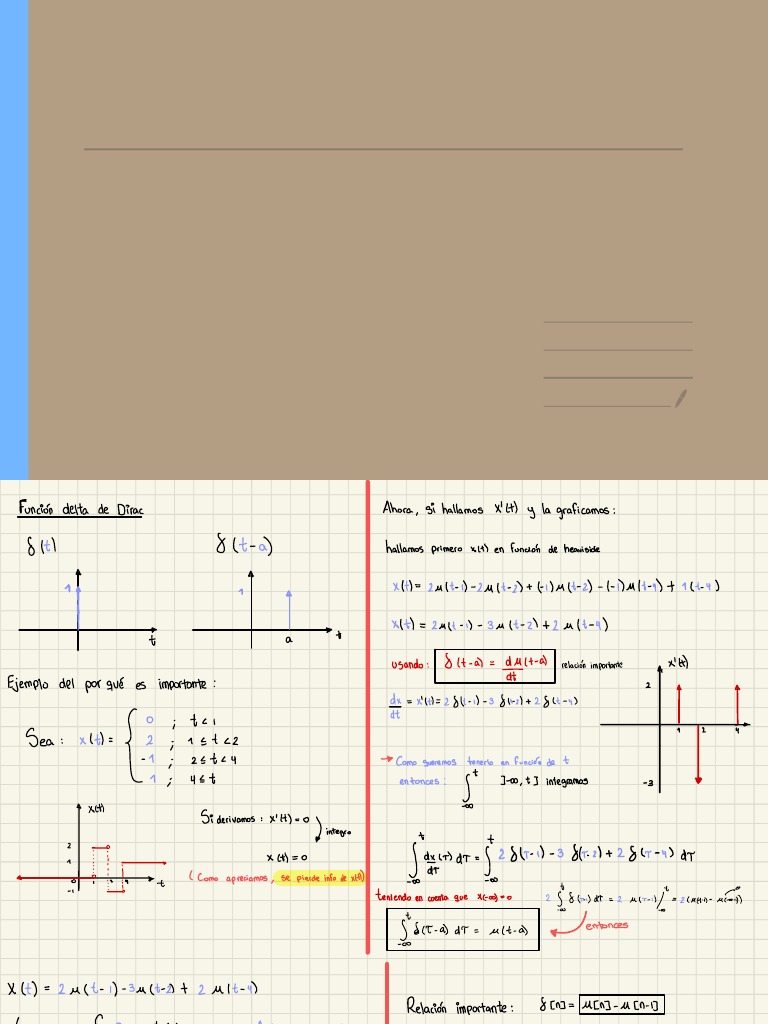 Función delta de Dirac
δ(t)
δ(t-a)
1
t
1
a
t
Ejemplo del por qué es importante:
Sea: x(t) = { 0 ; t < 1
2 ; 1 ≤ t < 2
-1 ; 2 ≤ t < 4
1 ; 4 ≤ t
x(t)
2
1
-1
1
2
4
t
Si derivamos: x'(t) = 0
integro
x(t) = 0
(Como apreciamos, se pierde info de x(t))
Ahora, si hallamos x'(t) y la graficamos:
hallamos primero x(t) en función de heaviside
x(t) = 2μ(t-1) - 2μ(t-2) + (-1)μ(t-2) - (-1)μ(t-4) + 1(t-4)
x(t) = 2μ(t-1) - 3μ(t-2) + 2μ(t-4)
usando: δ(t-a) = dμ(t-a)/dt relación importante
dx/dt = x'(t) = 2δ(t-1) - 3δ(t-2) + 2δ(t-4)
x'(t)
2
1
2
4
-3
→ Como queremos tenerlo en función de t
entonces: ∫_{-∞}^{t} ]-∞, t] integramos
∫_{-∞}^{t} dx/dτ (τ) dτ = ∫_{-∞}^{t} 2δ(τ-1) - 3δ(τ-2) + 2δ(τ-4) dτ
teniendo en cuenta que x(-∞) = 0
∫_{-∞}^{t} δ(τ-a) dτ = μ(t-a)
entonces
x(t) = 2μ(t-1) - 3μ(t-2) + 2μ(t-4)
Relación importante: δ[n] = μ[n] - μ[n-1]